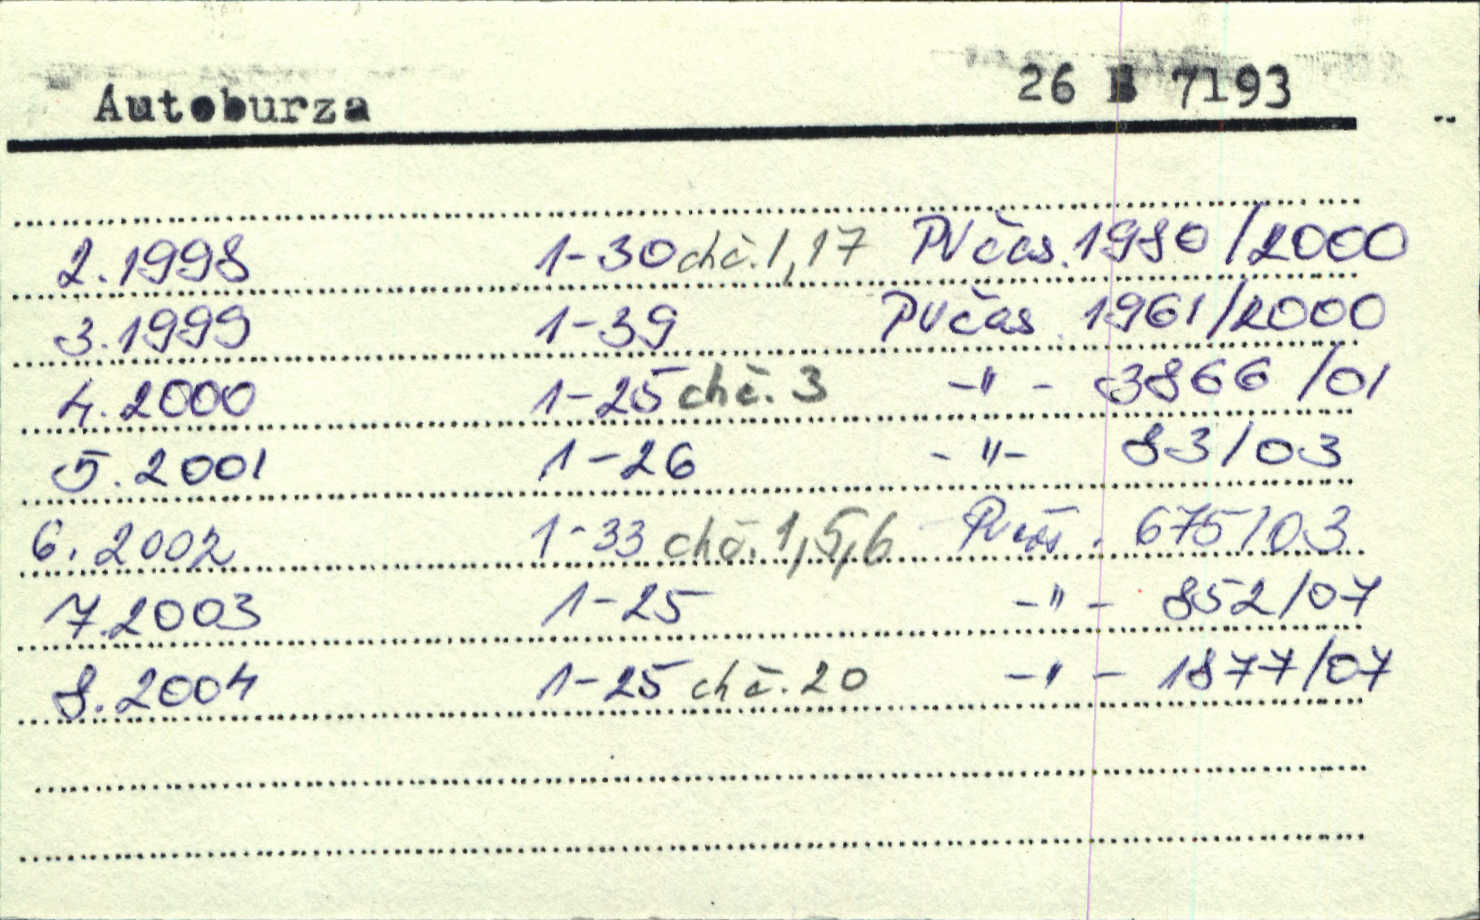 Autoburza 26 B 7193
2.1998 1-30 chč.1,17 PVčas.1980/2000
3.1999 1-39 PVčas. 1961/2000
4.2000 1-25 chč.3 -"- 3866/01
5.2001 1-26 -"- 83/03
6.2002 1-33 chč.1,5,6 PVčas. 675/03
7.2003 1-25 -"- 852/07
8.2004 1-25 chč.20 -"- 1877/07